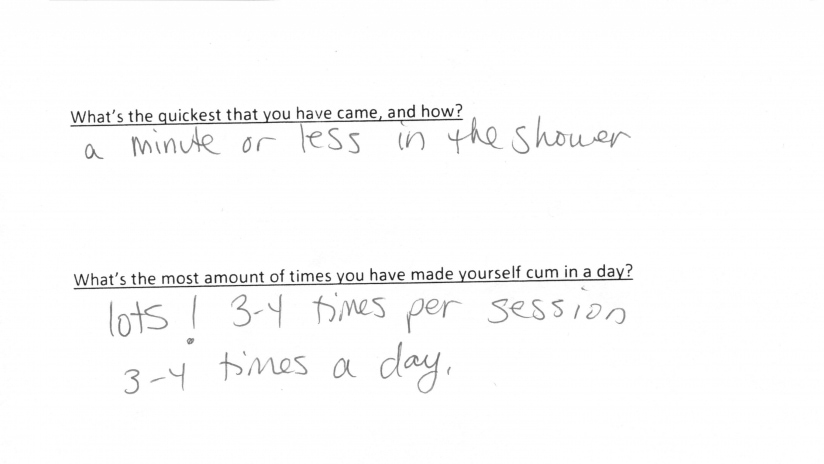 What's the quickest that you have came, and how?
a minute or less in the shower
What's the most amount of times you have made yourself cum in a day?
lots! 3-4 times per session
3-4 times a day.